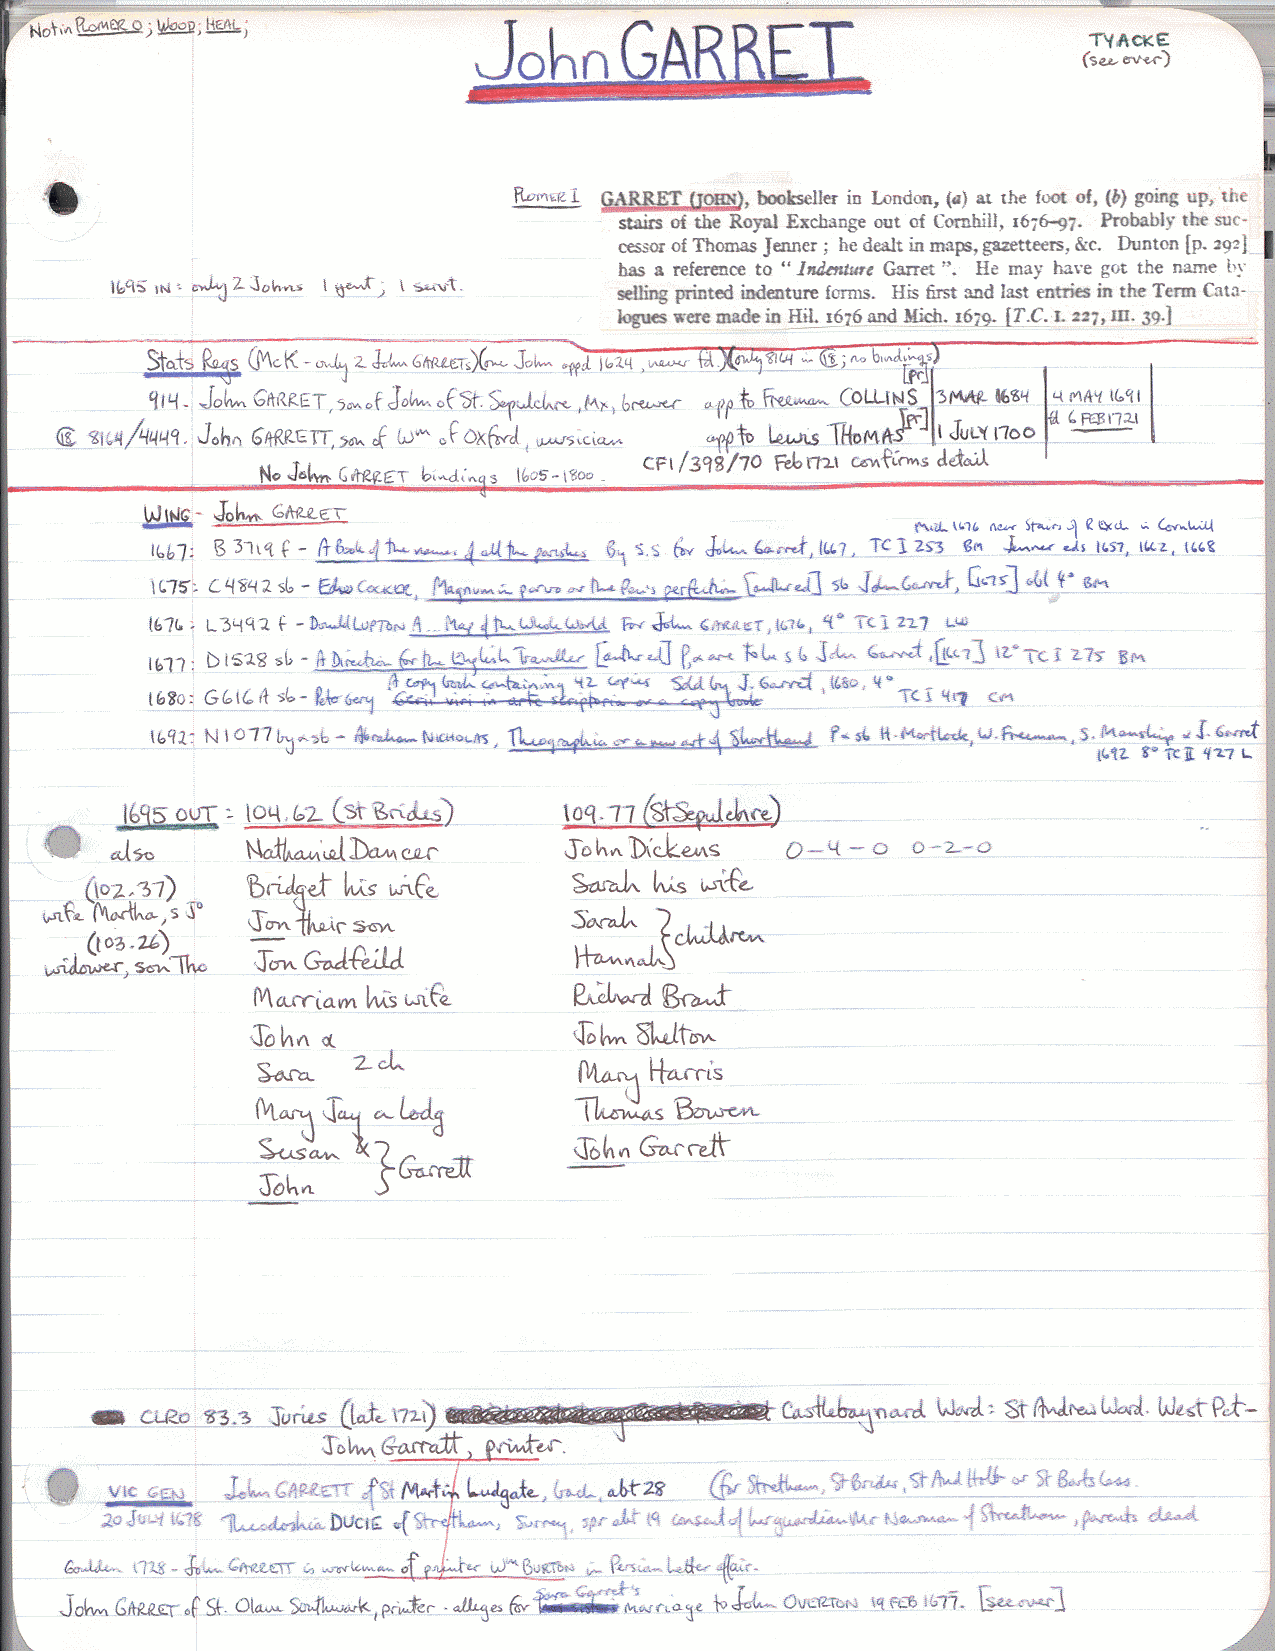 Not in PLOMER O; WOOD; HEAL;
John GARRET
TYACKE
(see over)
PLOMER I
GARRET (JOHN), bookseller in London, (a) at the foot of, (b) going up, the
stairs of the Royal Exchange out of Cornhill, 1676-97. Probably the suc-
cessor of Thomas Jenner; he dealt in maps, gazetteers, &c. Dunton [p. 292]
has a reference to "Indenture Garret". He may have got the name by
selling printed indenture forms. His first and last entries in the Term Cata-
logues were made in Hil. 1676 and Mich. 1679. [T.C. I. 227, III. 39.]
1695 IN: only 2 Johns 1 gent; 1 servt.
Stats Regs (McK - only 2 John GARRETs)(one John appd 1624, never fd.)(only 8164 in 18; no bindings)
914. John GARRET, son of John of St. Sepulchre, Mx, brewer app to Freeman COLLINS [pr] 3 MAR 1684 4 MAY 1691
18 8164/4449. John GARRETT, son of Wm of Oxford, musician app to Lewis THOMAS [pr] 1 JULY 1700 fd 6 FEB 1721
CF1/398/70 Feb 1721 confirms detail
No John GARRET bindings 1605-1800.
WING - John GARRET
Mich 1676 near Stairs of R Exch in Cornhill
1667: B 3719 f - A Book of the names of all the parishes By S.S for John Garret, 1667, TC I 253 BM Jenner eds 1657, 1662, 1668
1675: C4842 sb - Edw COCKER, Magnum in parvo or the Pen's perfection [enthred] sb John Garret, [1675] obl 4° BM
1676: L3492 f - Donald LUPTON A... Map of the Whole World For John GARRET, 1676, 4° TC I 227 LW
1677: D1528 sb - A Direction for the English Traveller [enthred] P, & are to be sb John Garret, [1667] 12° TC I 275 BM
A copy book containing 42 copies Sold by J. Garret, 1680, 4°
1680: G616A sb - Peter Gery Gerii viri in arte scriptoria or a copy book TC I 417 CM
1692: N1077 by & sb - Abraham NICHOLAS, Theographia or a new art of Shorthand P & sb H. Mortlock, W. Freeman, S. Manship & J. Garret
1692 8° TC II 427 L
1695 OUT = 104.62 (St Brides) 109.77 (St Sepulchre)
also Nathaniel Dancer John Dickens 0-4-0 0-2-0
(102.37) Bridget his wife Sarah his wife
wife Martha, s Jo
Jon their son Sarah } children
(103.26)
widower, son Tho Jon Gadfeild Hannah
Marriam his wife Richard Brant
John & John Shelton
Sara 2 ch Mary Harris
Mary Jay a Lodg Thomas Bowen
Susan & } Garrett John Garrett
John
CLRO 83.3 Juries (late 1721) Castlebaynard Ward: St Andrew Ward. West Pct-
John Garratt, printer.
VIC GEN John GARRETT of St Martin Ludgate, bach, abt 28 (for Stretham, St Brides, St And Holb or St Barts Less.
20 JULY 1678 Theodoshia DUCIE of Stretham, Surrey, spr abt 19 consent of her guardian Mr Newman of Streatham, parents dead
Goulden 1728 - John GARRETT is workman of printer Wm BURTON in Persian Letter affair.
John GARRET of St. Olave Southwark, printer - alleges for Sara Garret's marriage to John OVERTON 19 FEB 1677. [see over]